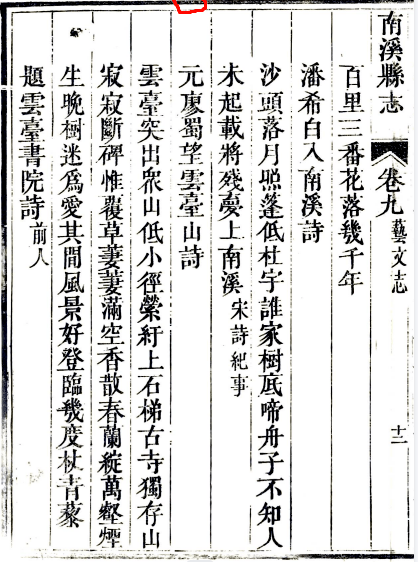 南溪縣志
卷九
藝文志
十二
百里三番花落幾千年
潘希白入南溪詩
沙頭落月照蓬低杜宇誰家樹底啼舟子不知人
未起載將殘夢上南溪 宋詩紀事
元廖蜀望雲臺山詩
雲臺突出衆山低小徑縈紆上石梯古寺獨存山
寂寂斷碑惟覆草萋萋滿空香散春蘭綻萬壑煙
生晚樹迷爲愛其間風景好登臨幾度杖青藜
題雲臺書院詩 前人